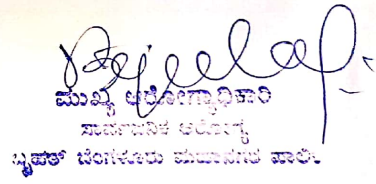 ಮುಖ್ಯ ಆರೋಗ್ಯಾಧಿಕಾರಿ
ಸಾರ್ವಜನಿಕ ಆರೋಗ್ಯ
ಬೃಹತ್ ಬೆಂಗಳೂರು ಮಹಾನಗರ ಪಾಲಿ